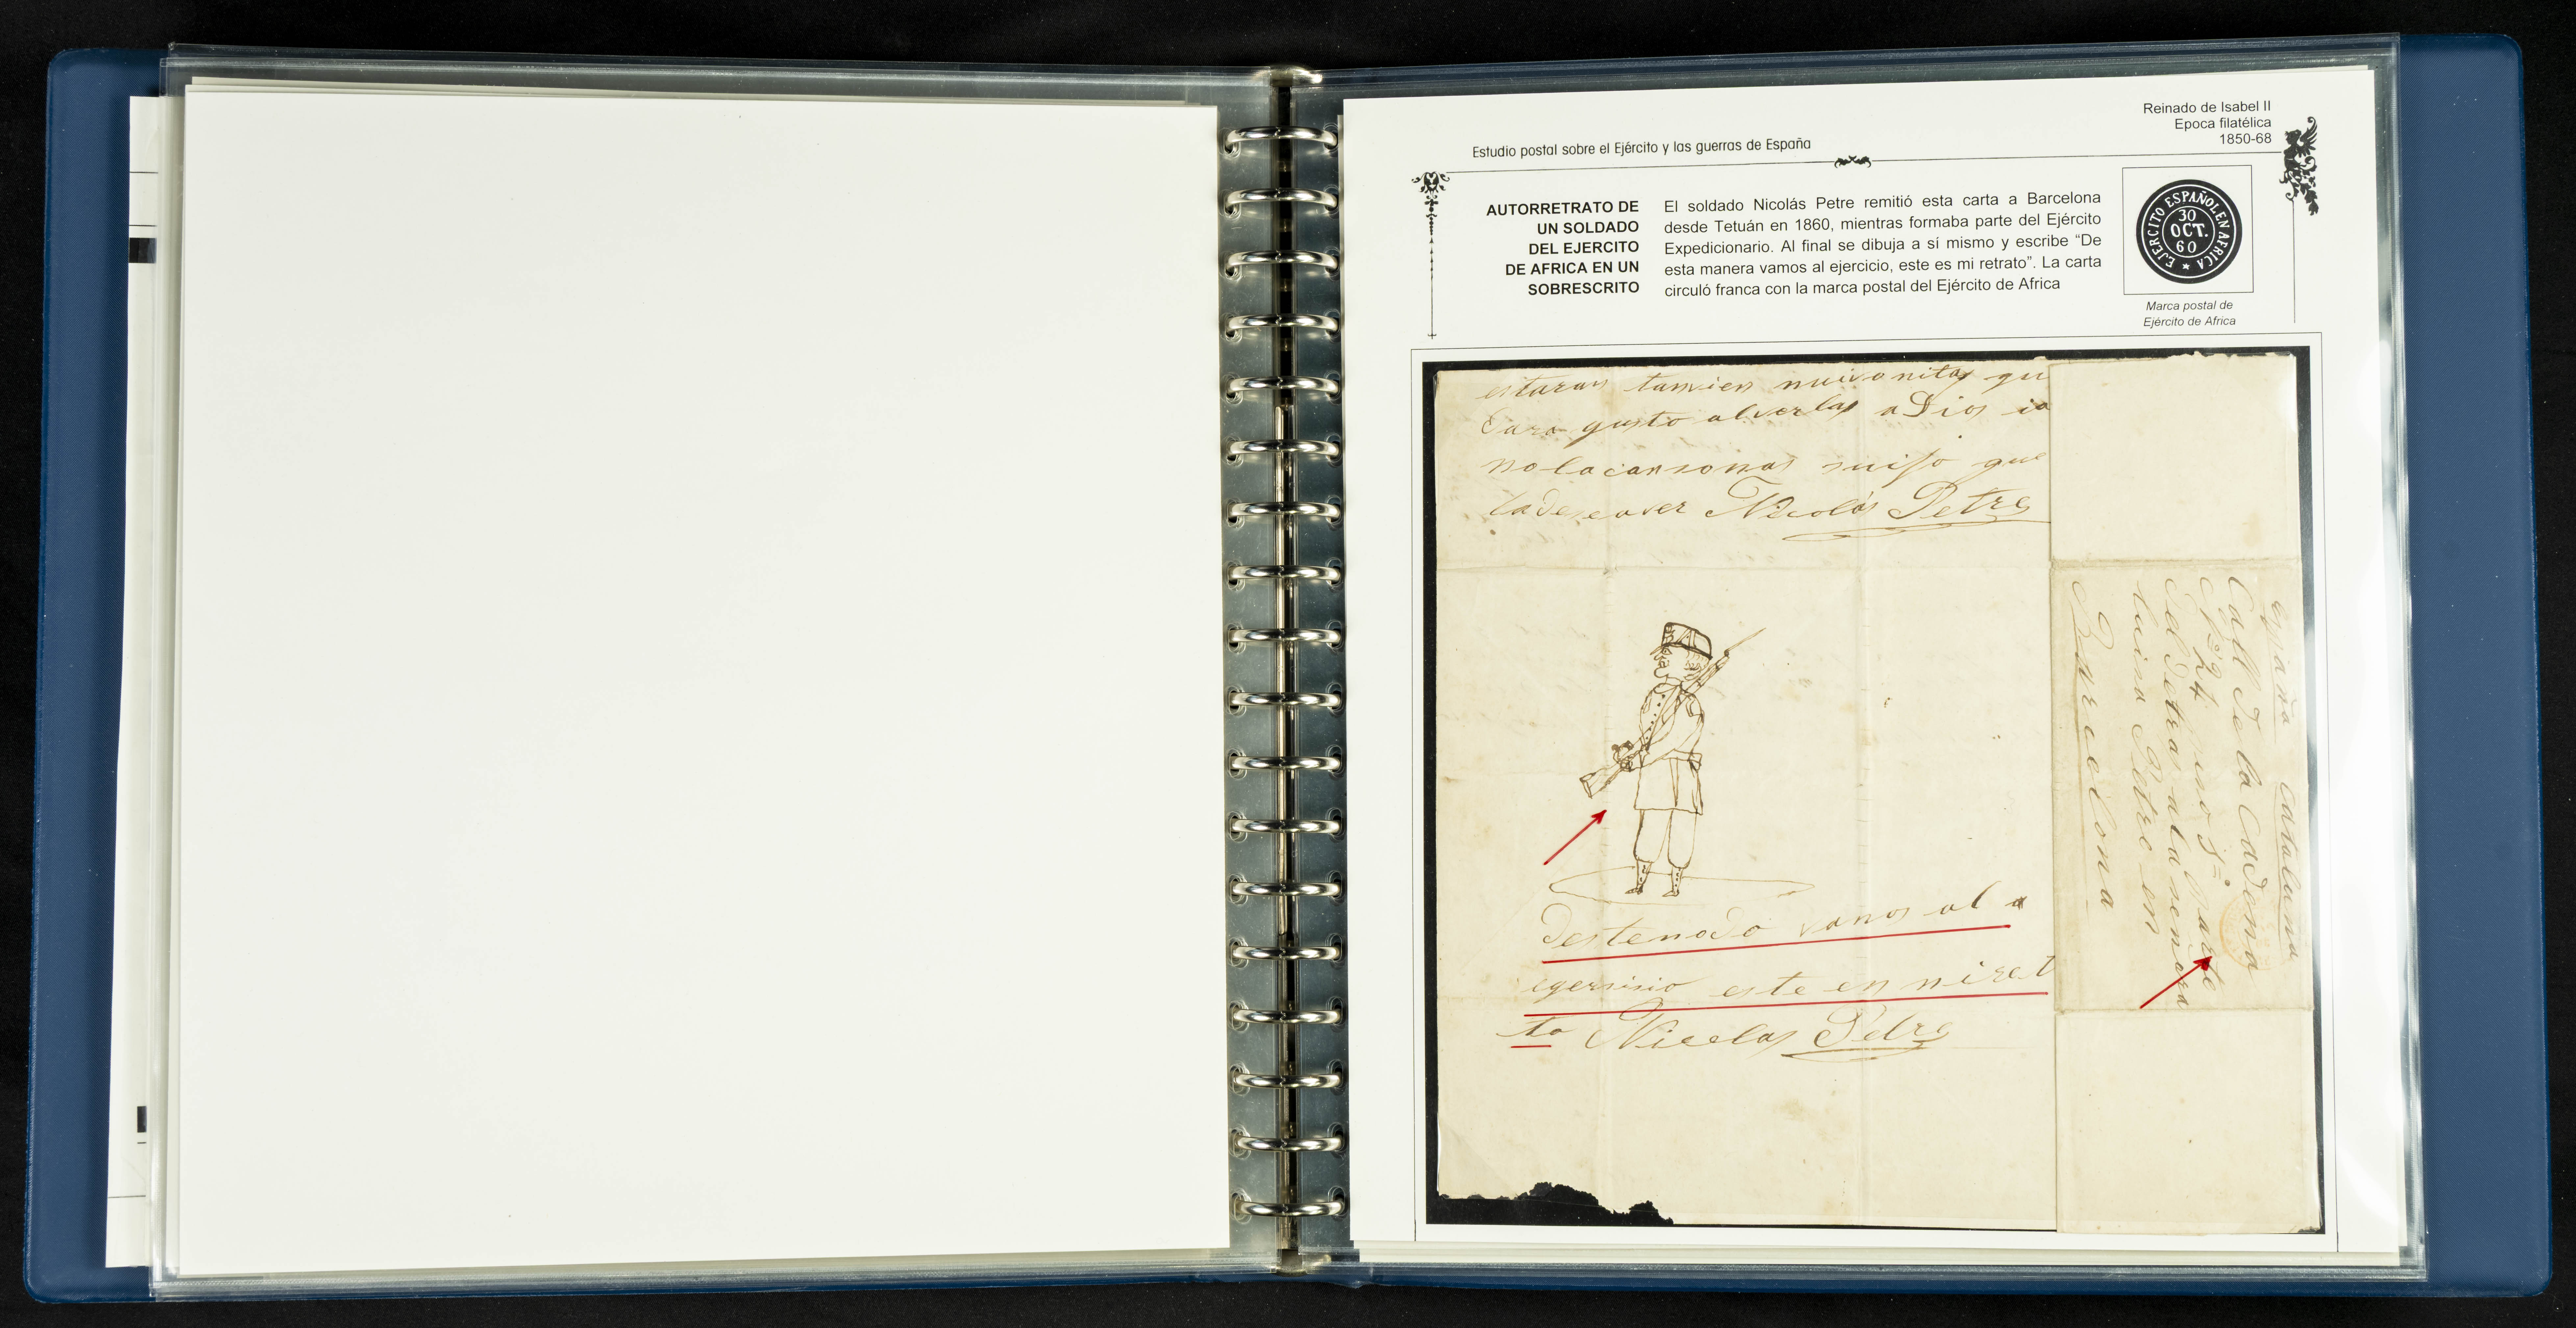 Reinado de Isabel II
Epoca filatélica
1850-68
Estudio postal sobre el Ejército y las guerras de España
AUTORRETRATO DE
UN SOLDADO
DEL EJERCITO
DE AFRICA EN UN
SOBRESCRITO
El soldado Nicolás Petre remitió esta carta a Barcelona
desde Tetuán en 1860, mientras formaba parte del Ejército
Expedicionario. Al final se dibuja a sí mismo y escribe “De
esta manera vamos al ejercicio, este es mi retrato”. La carta
circuló franca con la marca postal del Ejército de Africa
EJERCITO ESPAÑOL EN AFRICA
30
OCT.
60
Marca postal de
Ejército de Africa
estaran tamvien qu
gusto alverlas aDios
que
ladeseaver Nicolás Petre
destemodo vanos al a
egersisio este en miret
to Nicolas Petre
españa cataluna
Call de la Cadena
N 24 piso parte
deldetras ala senora
luisa Petre en
Barcelona